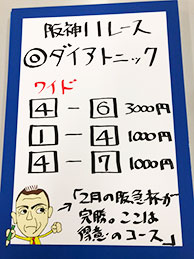 阪神11レース
◎ダイアトニック
ワイド
4-6 3000円
1-4 1000円
4-7 1000円
「2月の阪急杯が
完勝。ここは
得意のコース」